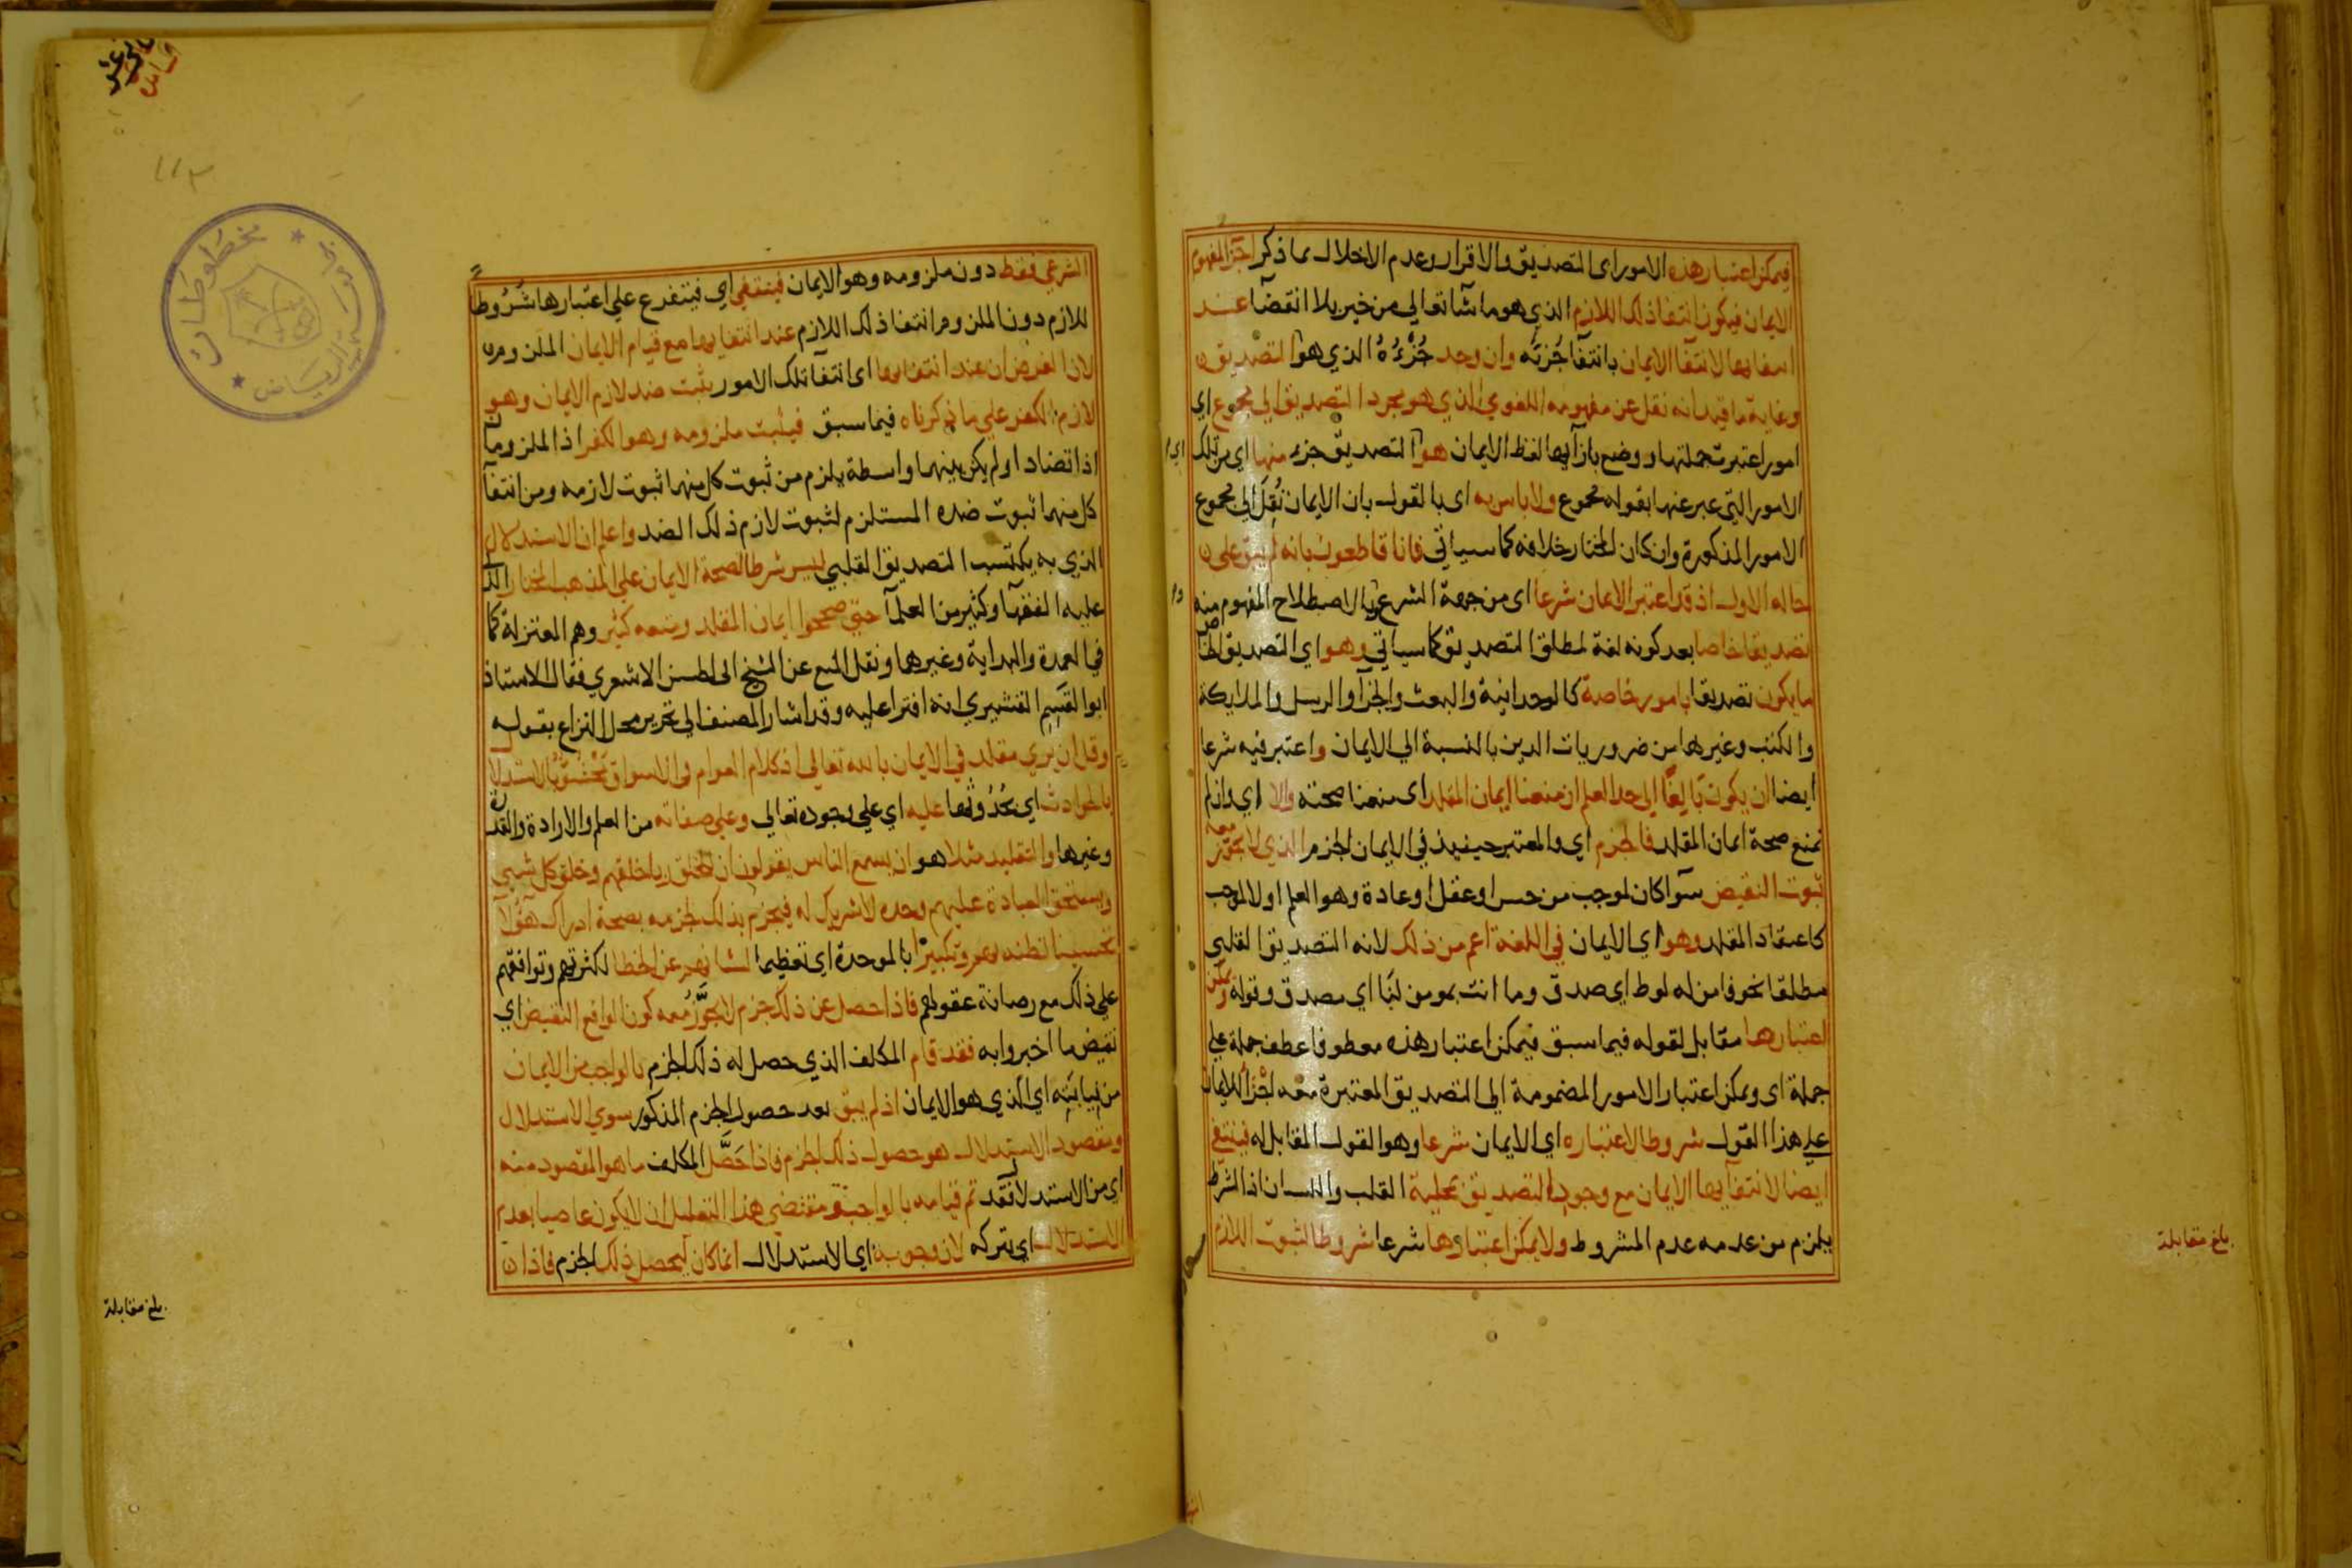 فيمكن اعتبار هذه الامور اى التصديق والاقرار وعدم الاخلال بما ذكر اجزا لمفهوم
الايمان فيكون انتفا ذلك اللازم الذي هو ما شآ تعالي من خير بلا انقضآ عند
انتفايها لانتفآ الايمان بانتفآ جُزئه وان وجد جُزءُهُ الذي هو التصديق
وغاية ما فيه انه نقل عن مفهومه اللغوي الذي هو مجرد التصديق الي مجموع اي
امور اعتبرت جملتها ووضع بازآيها لفظ الايمان هوا التصديق جزء منها اي من تلك
الامور التي عبر عنها بقوله مجموع ولا باس به اى بالقول بان الايمان نُقِلَ الي مجموع
الامور المذكورة وان كان المختار خلافه كما سياتي فانا قاطعون بانه لم يبق علي
حاله الاول اذ قد اعتبر الايمان شرعا اى من جهة الشرع بالاصطلاح المفهوم منه
تصديقا خاصا بعد كونه لغة لمطلق التصديق كما سياتي وهو اي التصديق الخاص
ما يكون تصديقا بامور خاصة كالوحدانية والبعث والجزآ والرسل والملايكة
والكتب وغيرها من ضروريات الدين بالنسبة الي الايمان واعتبر فيه شرعا
ايضا ان يكون بَالِغًا الي حد العلم ان منعنا ايمان المقلد اى منعنا صحته والا اي وان لم
نمنع صحة ايمان المقلد فالجزم اي والمعتبر حينيذ في الايمان الجزم الذي لا يجوز معه
ثبوت النقيض سوآ كان لموجب من حس او عقل او عادة وهو العلم او لا لموجب
كاعتقاد المقلد وهو اي الايمان في اللغة اعم من ذلك لانه التصديق القلبي
مطلقا نحو فامن له لوط اي صدق وما انت بمومن لنا اي مصدق وقوله ويمكن
اعتبارها مقابل لقوله فيما سبق فيمكن اعتبار هذه معطوفا عطف جملة علي
جملة اى ويمكن اعتبار الامور المضمومة الي التصديق المعتبرة معه اجزآ للايمان
علي هذا القول شروطا لاعتباره اي الايمان شرعا وهو القول المقابل له فينتفي
ايضا لانتفآيها الايمان مع وجود التصديق بمحلية القلب واللسان اذ الشرط
يلزم من عدمه عدم المشروط ولا يمكن اعتبارها شرعا شروطا لثبوت اللازم
بلغ مقابلة
١١٣
مخطوطات
الرياض
الشرعي فقط دون ملزومه وهو الايمان فينتفي اي فيتفرع علي اعتبارها شُرُوطا
للازم دون الملزوم انتفا ذلك اللازم عند انتفايها مع قيام الايمان الملزوم
لان الفرض ان عند انتفايها اى انتفآ تلك الامور يثبت ضد لازم الايمان وهو
لازم الكفر علي ما ذكرناه فيما سبق فيثبت ملزومه وهو الكفر اذ الملزومان
اذا تضادا ولم يكن بينهما واسطة يلزم من ثبوت كل منهما ثبوت لازمه ومن انتفآ
كل منهما ثبوت ضده المستلزم لثبوت لازم ذلك الضد واعلم ان الاستدلال
الذي به يكتسب التصديق القلبي ليس شرطا لصحة الايمان علي المذهب المختار الذي
عليه الفقهآ وكثير من العلمآ حتي صححوا ايمان المقلد ومنعه كثير وهم المعتزلة كما
في العمدة والبداية وغيرها ونقل المنع عن الشيخ ابى الحسن الاشعري فقال الاستاذ
ابو القسم القشيري انه افترا عليه وقد اشار المصنف الي تحرير محل النزاع بقوله
وقل ان يري مقلد في الايمان بالله تعالي اذ كلام العوام في الاسواق مَحْشُوٌّ بالاستدلال
بالحوادث اي بحُدُوثها عليه اي علي وجوده تعالي وعلي صفاته من العلم والارادة والقدرة
وغيرها والتقليد مثلا هو ان يسمع الناس يقولون ان للخلق ربا خلقهم وخلق كل شيي
ويستحق العبادة عليهم وحده لا شريك له فيجزم بذلك لجزمه بصحة ادراك هوُلآ
تحسينا لظنه بهم وتكبيرًا بالموحدة اي تعظيما لشانهم عن الخطا لكثرتهم وتوافقهم
علي ذلك مع رصانة عقولهم فاذا حصل عن ذلك جزم لا يجَوَّزُ معه كون الواقع النقيض اي
نقيض ما اخبروا به فقد قام المكلف الذي حصل له ذلك الجزم بالواجب من الايمان
من بيانيه اي الذي هو الايمان اذ لم يبق بعد حصول الجزم المذكور سوي الاستدلال
ومقصود الاستدلال هو حصول ذلك الجزم فاذا حَصَّل المكلف ما هو المقصود منه
اي من الاستدلال فقد تم قيامه بالواجب ومقتضي هذا التعليل ان لا يكون عاصيا بعدم
الاستدلال اي بتركه لان وجوبه اي الاستدلال انما كان ليحصل ذلك الجزم فاذا
بلغ مقابلة